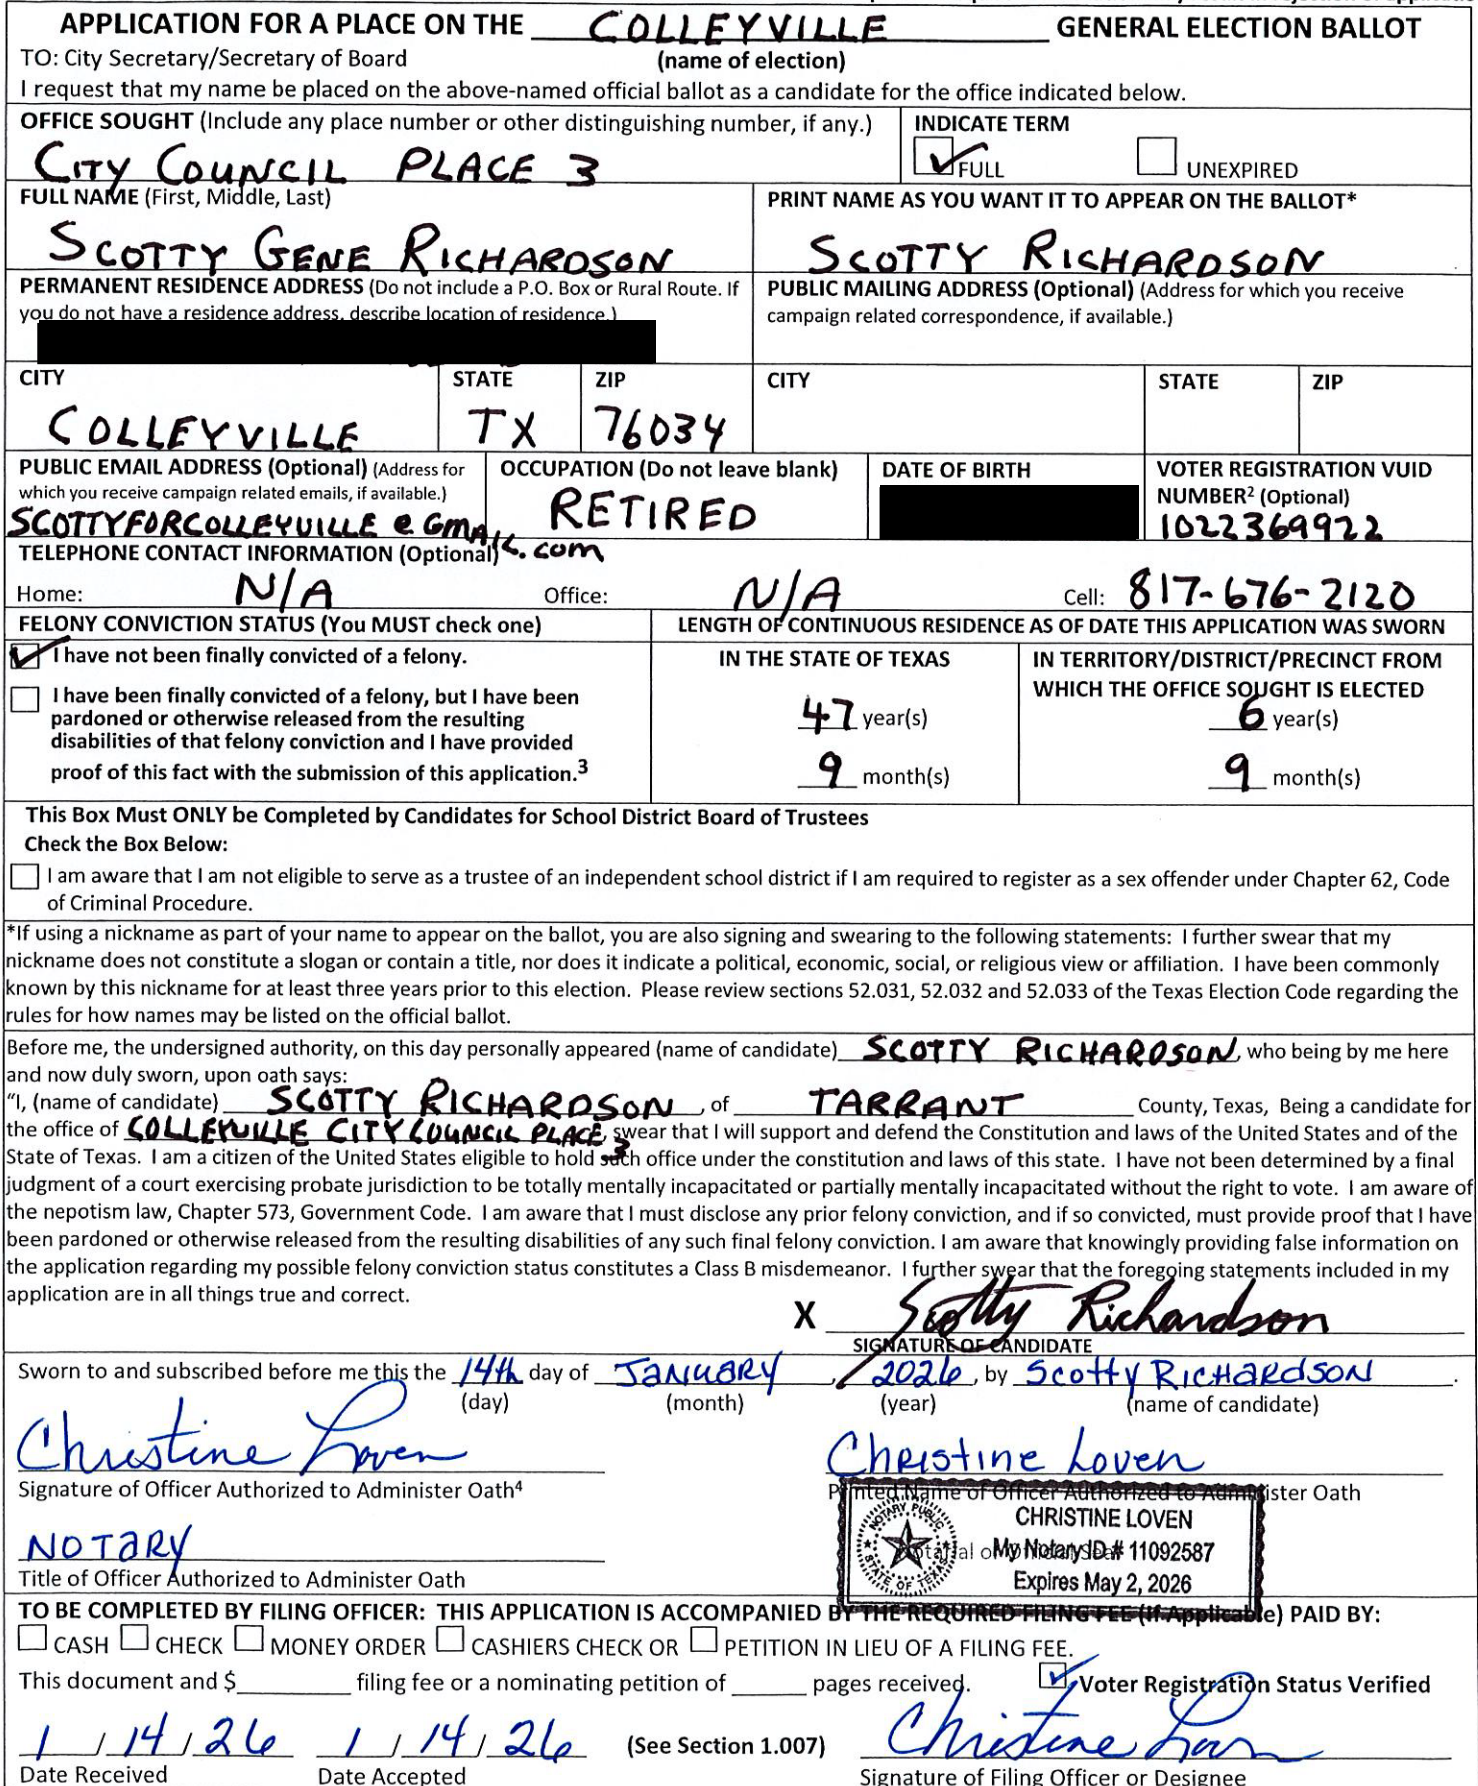 APPLICATION FOR A PLACE ON THE COLLEYVILLE GENERAL ELECTION BALLOT
TO: City Secretary/Secretary of Board (name of election)
I request that my name be placed on the above-named official ballot as a candidate for the office indicated below.
OFFICE SOUGHT (Include any place number or other distinguishing number, if any.)
CITY COUNCIL PLACE 3
INDICATE TERM
FULL UNEXPIRED
FULL NAME (First, Middle, Last)
SCOTTY GENE RICHARDSON
PRINT NAME AS YOU WANT IT TO APPEAR ON THE BALLOT*
SCOTTY RICHARDSON
PERMANENT RESIDENCE ADDRESS (Do not include a P.O. Box or Rural Route. If
you do not have a residence address, describe location of residence.)
PUBLIC MAILING ADDRESS (Optional) (Address for which you receive
campaign related correspondence, if available.)
CITY STATE ZIP CITY STATE ZIP
COLLEYVILLE TX 76034
PUBLIC EMAIL ADDRESS (Optional) (Address for
which you receive campaign related emails, if available.)
SCOTTYFORCOLLEYVILLE@GMAIL.COM
OCCUPATION (Do not leave blank)
RETIRED
DATE OF BIRTH
VOTER REGISTRATION VUID
NUMBER² (Optional)
1022369922
TELEPHONE CONTACT INFORMATION (Optional)
Home: N/A Office: N/A Cell: 817-676-2120
FELONY CONVICTION STATUS (You MUST check one)
I have not been finally convicted of a felony.
I have been finally convicted of a felony, but I have been
pardoned or otherwise released from the resulting
disabilities of that felony conviction and I have provided
proof of this fact with the submission of this application.³
LENGTH OF CONTINUOUS RESIDENCE AS OF DATE THIS APPLICATION WAS SWORN
IN THE STATE OF TEXAS
47 year(s)
9 month(s)
IN TERRITORY/DISTRICT/PRECINCT FROM
WHICH THE OFFICE SOUGHT IS ELECTED
6 year(s)
9 month(s)
This Box Must ONLY be Completed by Candidates for School District Board of Trustees
Check the Box Below:
I am aware that I am not eligible to serve as a trustee of an independent school district if I am required to register as a sex offender under Chapter 62, Code
of Criminal Procedure.
*If using a nickname as part of your name to appear on the ballot, you are also signing and swearing to the following statements: I further swear that my
nickname does not constitute a slogan or contain a title, nor does it indicate a political, economic, social, or religious view or affiliation. I have been commonly
known by this nickname for at least three years prior to this election. Please review sections 52.031, 52.032 and 52.033 of the Texas Election Code regarding the
rules for how names may be listed on the official ballot.
Before me, the undersigned authority, on this day personally appeared (name of candidate) SCOTTY RICHARDSON, who being by me here
and now duly sworn, upon oath says:
"I, (name of candidate) SCOTTY RICHARDSON, of TARRANT County, Texas, Being a candidate for
the office of COLLEYVILLE CITY COUNCIL PLACE 3, swear that I will support and defend the Constitution and laws of the United States and of the
State of Texas. I am a citizen of the United States eligible to hold such office under the constitution and laws of this state. I have not been determined by a final
judgment of a court exercising probate jurisdiction to be totally mentally incapacitated or partially mentally incapacitated without the right to vote. I am aware of
the nepotism law, Chapter 573, Government Code. I am aware that I must disclose any prior felony conviction, and if so convicted, must provide proof that I have
been pardoned or otherwise released from the resulting disabilities of any such final felony conviction. I am aware that knowingly providing false information on
the application regarding my possible felony conviction status constitutes a Class B misdemeanor. I further swear that the foregoing statements included in my
application are in all things true and correct.
X Scotty Richardson
SIGNATURE OF CANDIDATE
Sworn to and subscribed before me this the 14th day of January, 2026, by Scotty Richardson.
(day) (month) (year) (name of candidate)
Christine Loven Christine Loven
Signature of Officer Authorized to Administer Oath⁴ Printed Name of Officer Authorized to Administer Oath
NOTARY PUBLIC
STATE OF TEXAS
CHRISTINE LOVEN
My Notary ID # 11092587
Expires May 2, 2026
Notary
Title of Officer Authorized to Administer Oath
TO BE COMPLETED BY FILING OFFICER: THIS APPLICATION IS ACCOMPANIED BY THE REQUIRED FILING FEE (If Applicable) PAID BY:
CASH CHECK MONEY ORDER CASHIERS CHECK OR PETITION IN LIEU OF A FILING FEE.
This document and $ filing fee or a nominating petition of pages received. Voter Registration Status Verified
1/14/26 1/14/26 (See Section 1.007) Christine Loven
Date Received Date Accepted Signature of Filing Officer or Designee